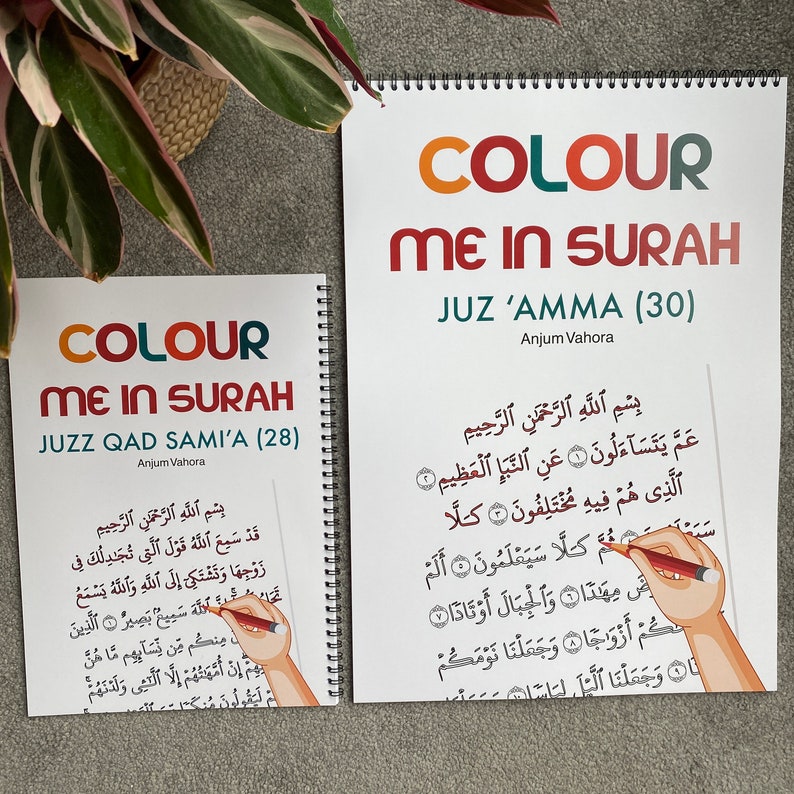 COLOUR
ME IN SURAH
JUZZ QAD SAMI'A (28)
Anjum Vahora
بِسْمِ ٱللَّهِ ٱلرَّحْمَٰنِ ٱلرَّحِيمِ
قَدْ سَمِعَ ٱللَّهُ قَوْلَ ٱلَّتِى تُجَٰدِلُكَ فِى
زَوْجِهَا وَتَشْتَكِىٓ إِلَى ٱللَّهِ وَٱللَّهُ يَسْمَعُ
ٱللَّهَ سَمِيعٌۢ بَصِيرٌ ١ ٱلَّذِينَ
مِنكُم مِّن نِّسَآئِهِم مَّا هُنَّ
إِنْ أُمَّهَٰتُهُمْ إِلَّا ٱلَّٰٓـِٔى وَلَدْنَهُمْ ۚ
لَيَقُولُونَ مُنكَرًا مِّنَ
COLOUR
ME IN SURAH
JUZ ‘AMMA (30)
Anjum Vahora
بِسْمِ ٱللَّهِ ٱلرَّحْمَٰنِ ٱلرَّحِيمِ
عَمَّ يَتَسَآءَلُونَ ١ عَنِ ٱلنَّبَإِ ٱلْعَظِيمِ ٢
ٱلَّذِى هُمْ فِيهِ مُخْتَلِفُونَ ٣ كَلَّا
ثُمَّ كَلَّا سَيَعْلَمُونَ ٥ أَلَمْ
مِهَٰدًا ٦ وَٱلْجِبَالَ أَوْتَادًا ٧
أَزْوَٰجًا ٨ وَجَعَلْنَا نَوْمَكُمْ
٩ وَجَعَلْنَا ٱلَّيْلَ لِبَاسًا